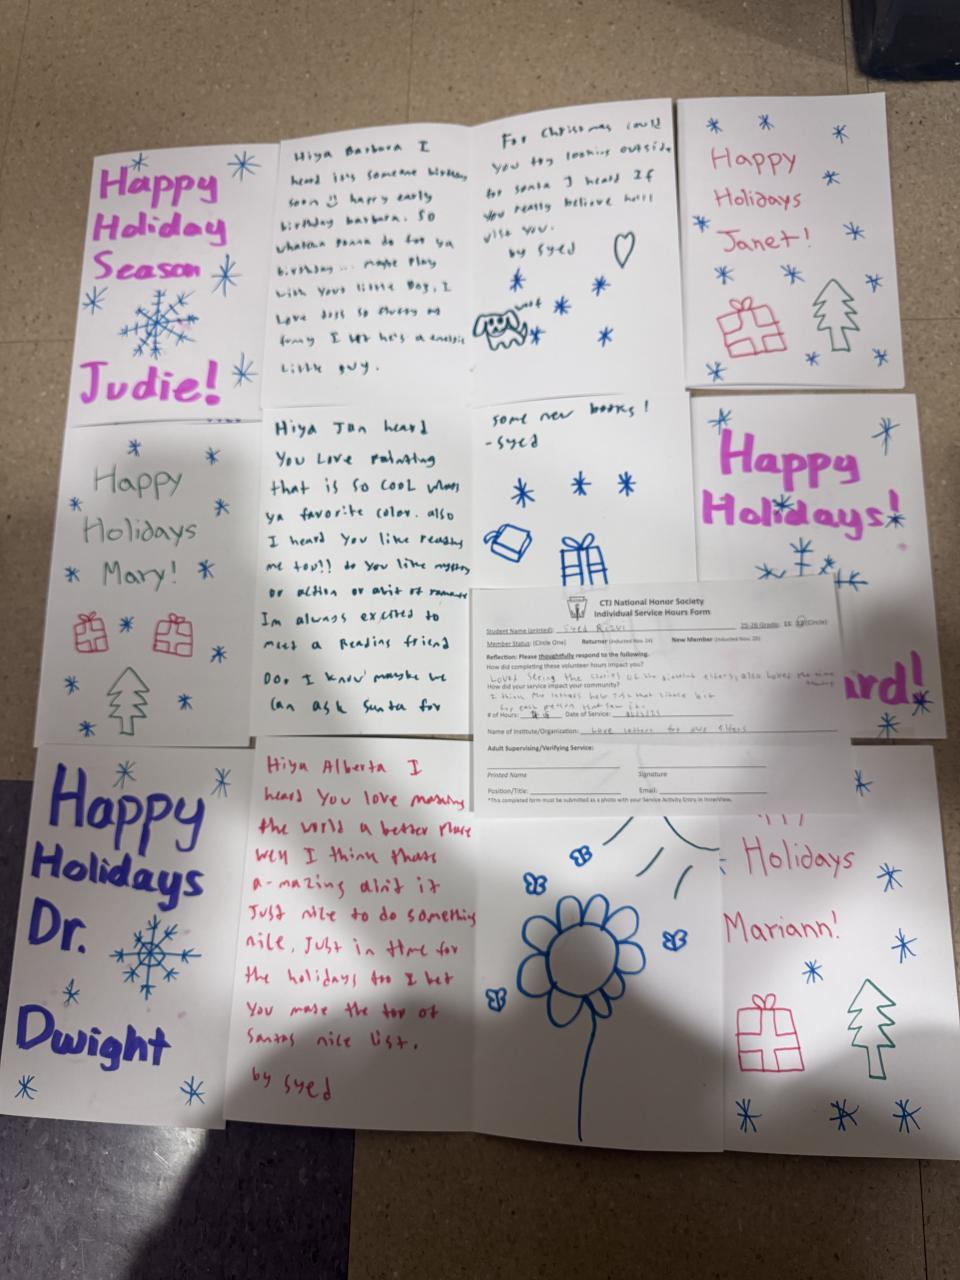 Happy
Holiday
Season
Judie!
Hiya Barbara I
heard its someone birthday
soon happy early
birthday barbara. So
whatcha gonna do for ya
birthday... maybe play
with your little dog, I
Love dogs so fluffy and
funny I bet he's a energetic
little guy.
For Christmas could
you try looking outside
for santa I heard If
you really believe he'll
visit you.
by syed
woof
Happy
Holidays
Janet!
Happy
Holidays
Mary!
Hiya Jan heard
You Love Painting
that is so cool whats
ya favorite color. also
I heard you like reading
me too!! do you like mystery
or action or a bit of romance
Im always excited to
meet a Reading friend
Do, I know maybe we
Can ask santa for
some new books!
-syed
Happy
Holidays!
ard!
CTJ National Honor Society
Individual Service Hours Form
Student Name (printed): Syed Rizvi 25-26 Grade: 11 12 (Circle)
Member Status: (Circle One) Returner (Inducted Nov. 24) New Member (Inducted Nov. 25)
Reflection: Please thoughtfully respond to the following.
How did completing these volunteer hours impact you?
Loved seeing the stories of the different elders, also loved the
How did your service impact your community?
I think the letters help just that little bit
for each person that saw it.
# of Hours: Date of Service:
Name of Institute/Organization: Love letters for our elders
Adult Supervising/Verifying Service:
Printed Name Signature
Position/Title: Email:
*This completed form must be submitted as a photo with your Service Activity Entry in InnerView.
Happy
Holidays
Dr.
Dwight
Hiya Alberta I
heard You love making
the world a better place
well I think thats
a-mazing aint it
Just nice to do something
nice, Just in time for
the holidays too I bet
you made the top of
Santas nice list.
by syed
Holidays
Mariann!